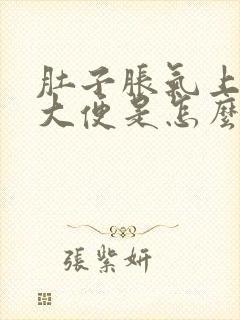 肚子脹氣上
大便是怎麼
張紫妍